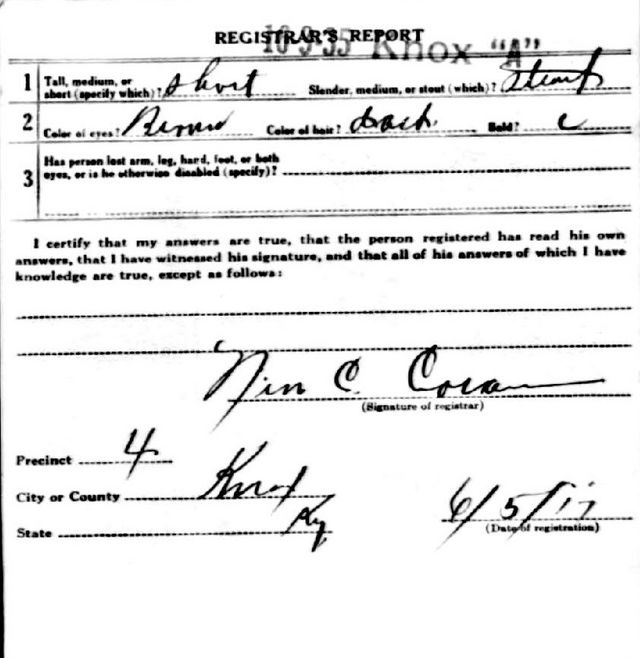 REGISTRAR'S REPORT
16-3-35 Knox "A"
1 Tall, medium, or short (specify which)? short Slender, medium, or stout (which)? Stout
2 Color of eyes? Brown Color of hair? Dark Bald?
3 Has person lost arm, leg, hand, foot, or both
eyes, or is he otherwise disabled (specify)?
I certify that my answers are true, that the person registered has read his own
answers, that I have witnessed his signature, and that all of his answers of which I have
knowledge are true, except as follows:
C.
(Signature of registrar)
Precinct 4
City or County Knox
State Ky
6/5/17
(Date of registration)